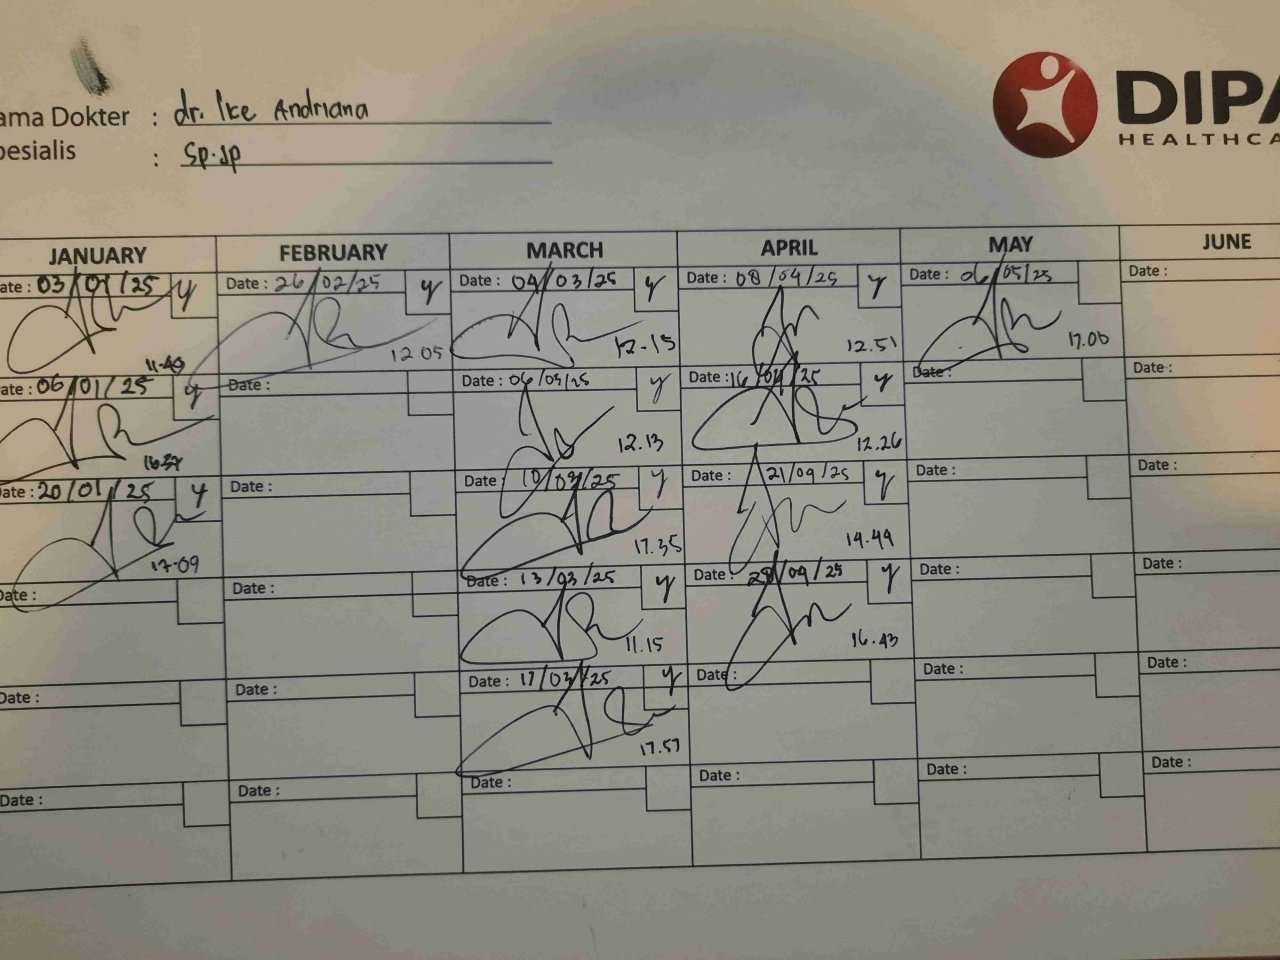 ama Dokter : dr. Ike Andriana
esialis : Sp.Jp
DIPA
HEALTHCA
JANUARY FEBRUARY MARCH APRIL MAY JUNE
ate : 03/01/25 y Date : 26/02/25 y Date : 04/03/25 y Date : 08/04/25 y Date : 06/05/25 Date :
12.05 12.15 12.51 17.00
ate : 06/01/25 y Date : Date : 06/03/25 y Date : 16/04/25 y Date : Date :
16.37 12.13 12.26
ate : 20/01/25 y Date : Date : 10/03/25 y 21/04/25 y Date : Date :
17.09 17.35 14.44
ate : Date : Date : 13/03/25 y Date : 28/04/25 y Date : Date :
11.15 16.43
Date : Date : Date : 17/03/25 y Date : Date : Date :
17.57
Date : Date : Date : Date : Date : Date :